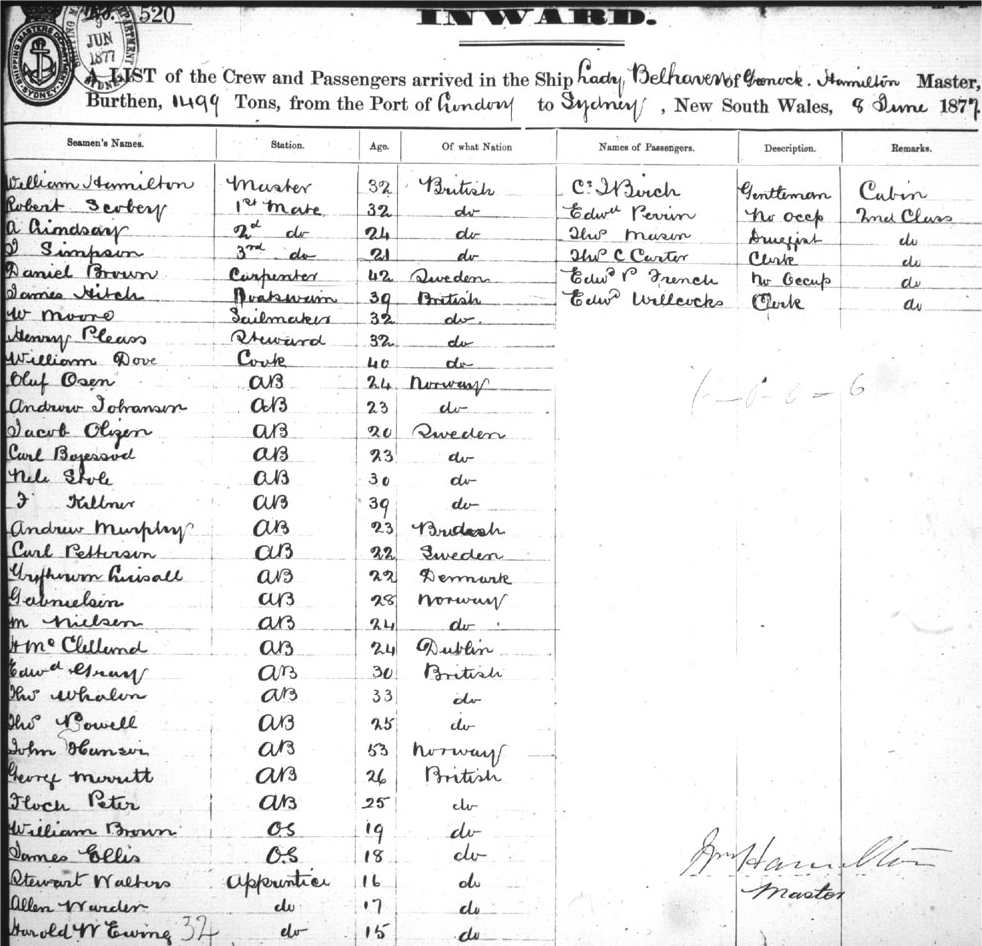 INWARD.
520
SHIPPING MASTERS DEPARTMENT SYDNEY
9 JUN 1877
A LIST of the Crew and Passengers arrived in the Ship Lady Belhaven of Greenock. Hamilton Master,
Burthen, 1499 Tons, from the Port of London to Sydney, New South Wales, 8 June 1877.
Seamen's Names. Station. Age. Of what Nation Names of Passengers. Description. Remarks.
William Hamilton Master 32 British Cs J Birch Gentleman Cabin
Robert Scobery 1st Mate 32 do Edwd Perrin No occp 2nd Class
A Lindsay 2d do 24 do Thos Mason Druggist do
J Simpson 3rd do 21 do Thos C Carter Clerk do
Daniel Brown Carpenter 42 Sweden Edwd P French No Occup do
James Hitch Boatswain 39 British Edwd Willcocks Clerk do
W Moore Sailmaker 32 do.
Henry Pleass Steward 32 do
William Dove Cook 40 do
Oluf Osen AB 24 Norway
Andrew Johansen AB 23 do
Jacob Olizen AB 20 Sweden
Carl AB 23 do
Nels AB 30 do
F Killner AB 39 do
Andrew Murphy AB 23 British
Carl Petterson AB 22 Sweden
AB 22 Denmark
Gabrielsin AB 28 Norway
M Nielsen AB 24 do
H Mc Clelland AB 24 Dublin
Edwd Gray AB 30 British
Thos Whalon AB 33 do
Thos Powell AB 25 do
John Hansen AB 53 Norway
George Merritt AB 26 British
Floch Peter AB 25 do
William Brown OS 19 do
James Ellis O.S 18 do
Stewart Walters Apprentice 16 do
Allen Warden do 17 do
Harold W Ewing 32 do 15 do
Wm Hamilton
Master